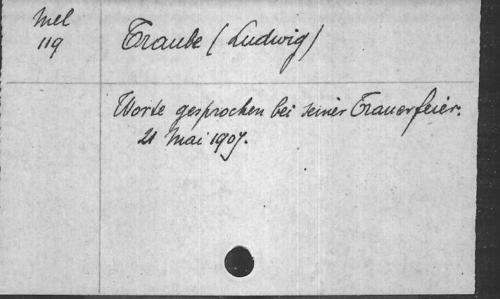 Mel
119
Traube (Ludwig)
Worte gesprochen bei seiner Trauerfeier.
21 Mai 1907.